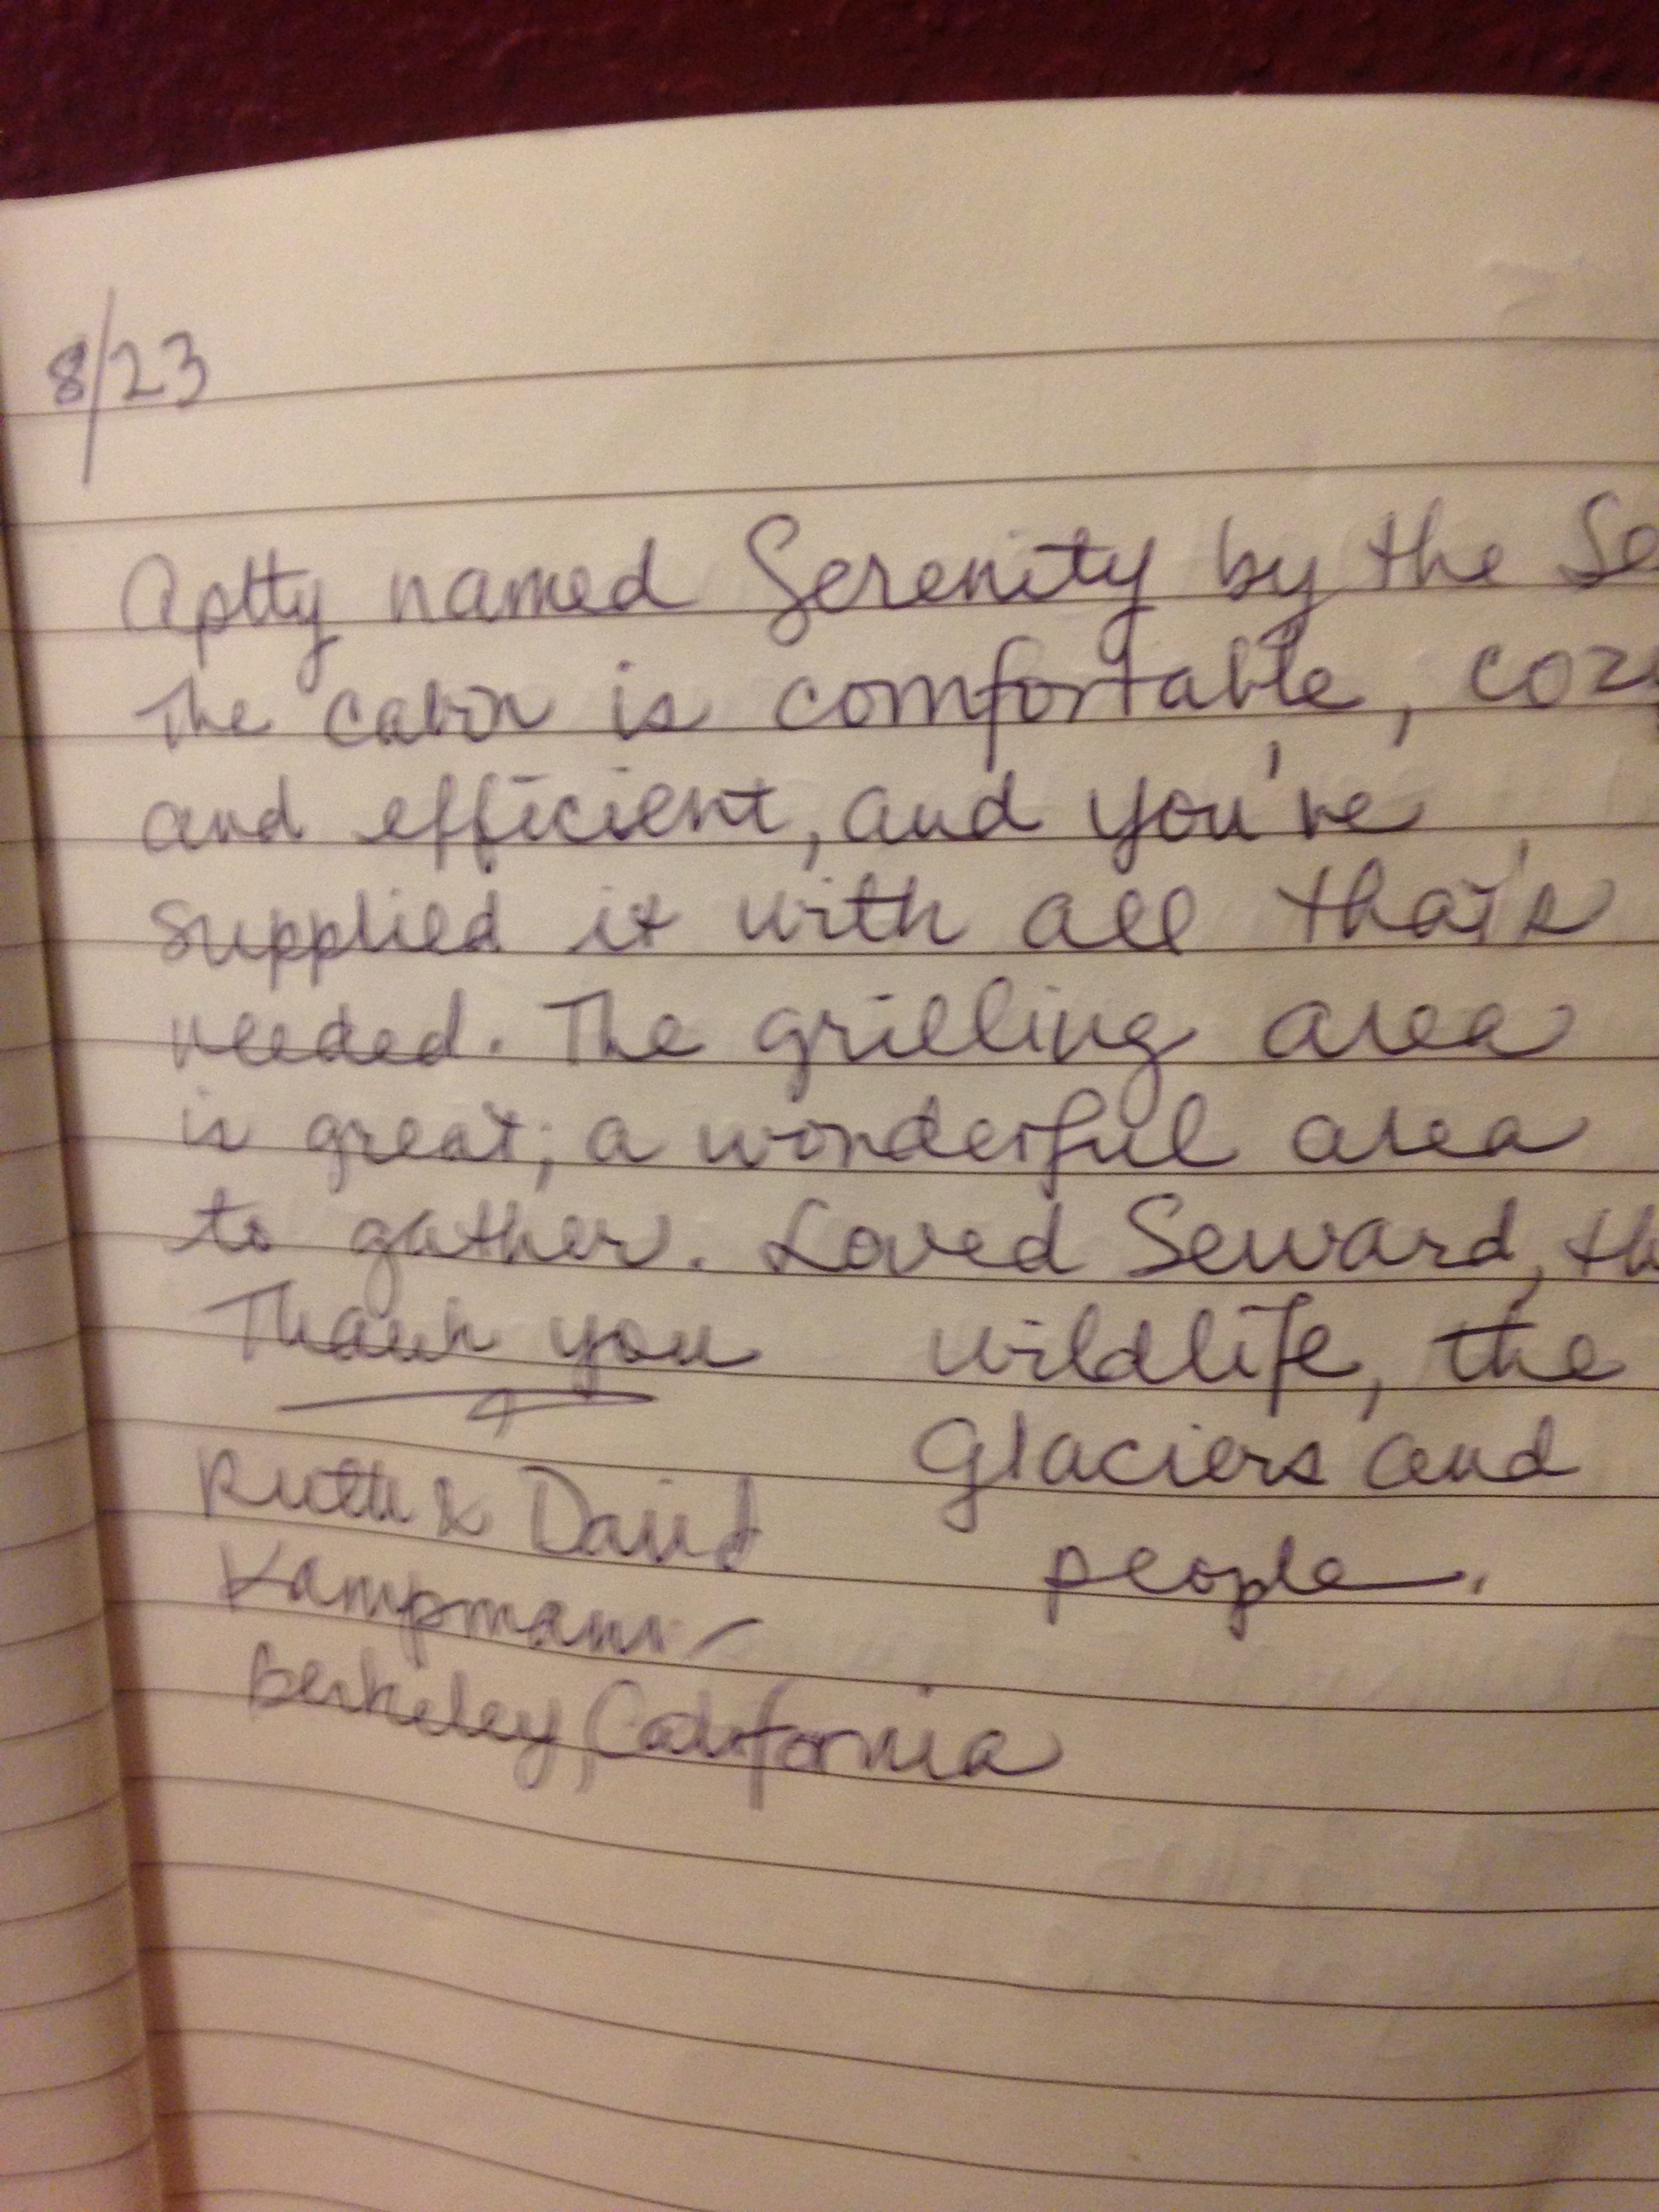 8/23
Aptly named Serenity by the Se
The cabin is comfortable, coz
and efficient, and you've
supplied it with all that's
needed. The grilling area
is great; a wonderful area
to gather. Loved Seward, th
Thank you
wildlife, the
Glaciers and
people.
Ruth & David
Kampmann
Berkeley, California